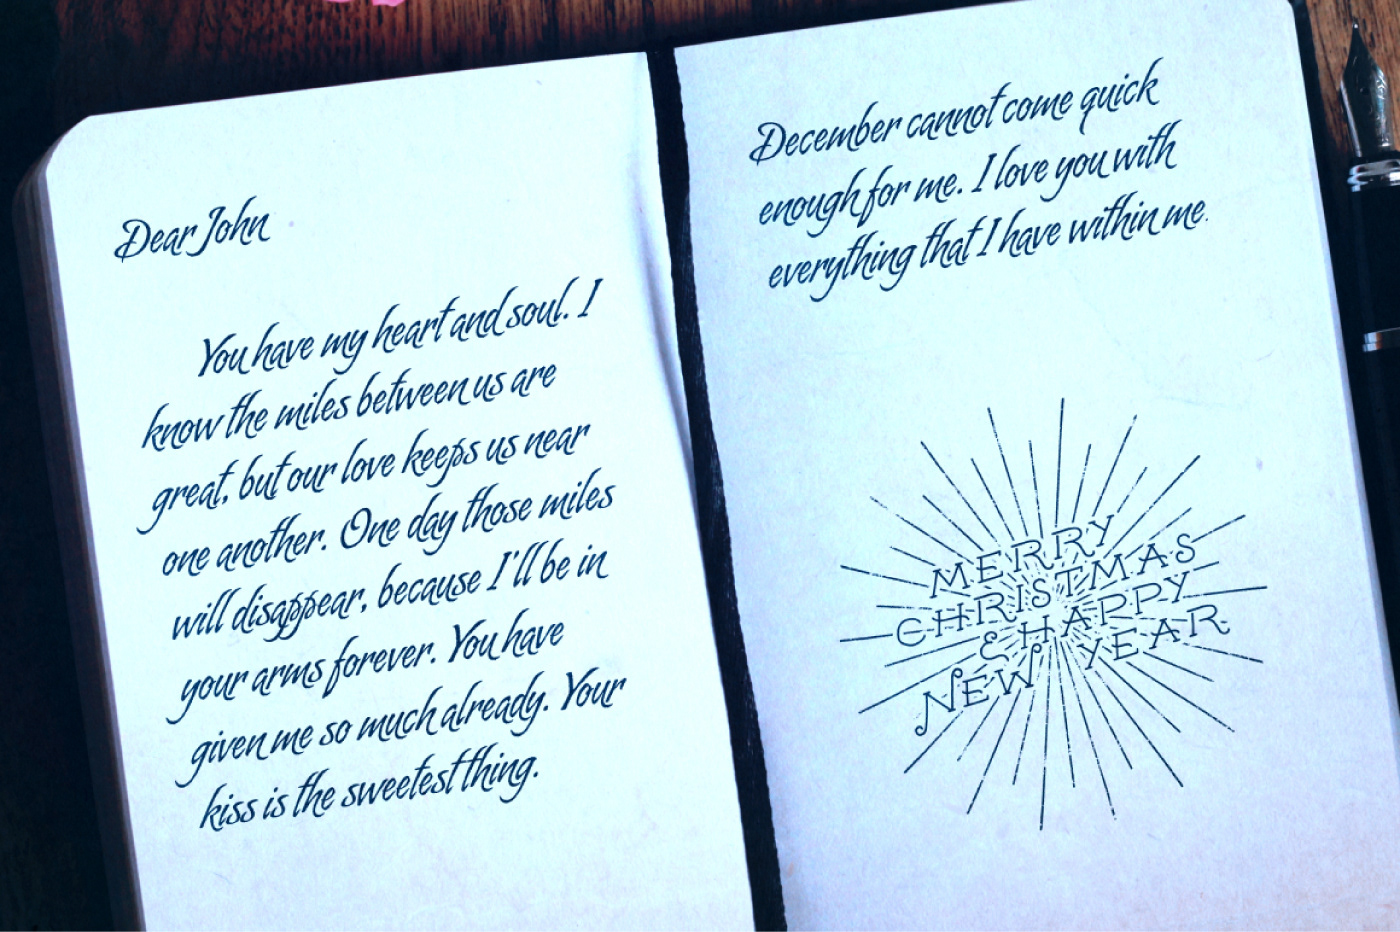 Dear John
You have my heart and soul. I
know the miles between us are
great, but our love keeps us near
one another. One day those miles
will disappear, because I'll be in
your arms forever. You have
given me so much already. Your
kiss is the sweetest thing.
December cannot come quick
enough for me. I love you with
everything that I have within me.
MERRY
CHRISTMAS
& HAPPY
NEW YEAR